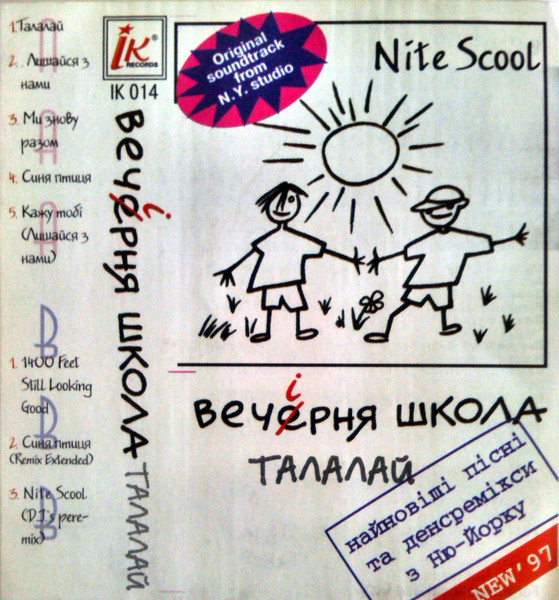 1. Талалай
2. Лишайся з
нами
3. Ми знову
разом
4. Синя птиця
5. Кажу тобі
(Лишайся з
нами)
1. 1400 Feet
Still Looking
Good
2. Синя птиця
(Remix Extended)
3. Nite Scool
(D.J.'s pere-
mix)
ік®
RECORDS
ІК 014
вечеірня школа ТАЛАЛАЙ
Original
soundtrack
from
N.Y. studio
Nite Scool
вечеірня школа
ТАЛАЛАЙ
найновіші пісні
та денсремікси
з Ню-Йорку
NEW'97